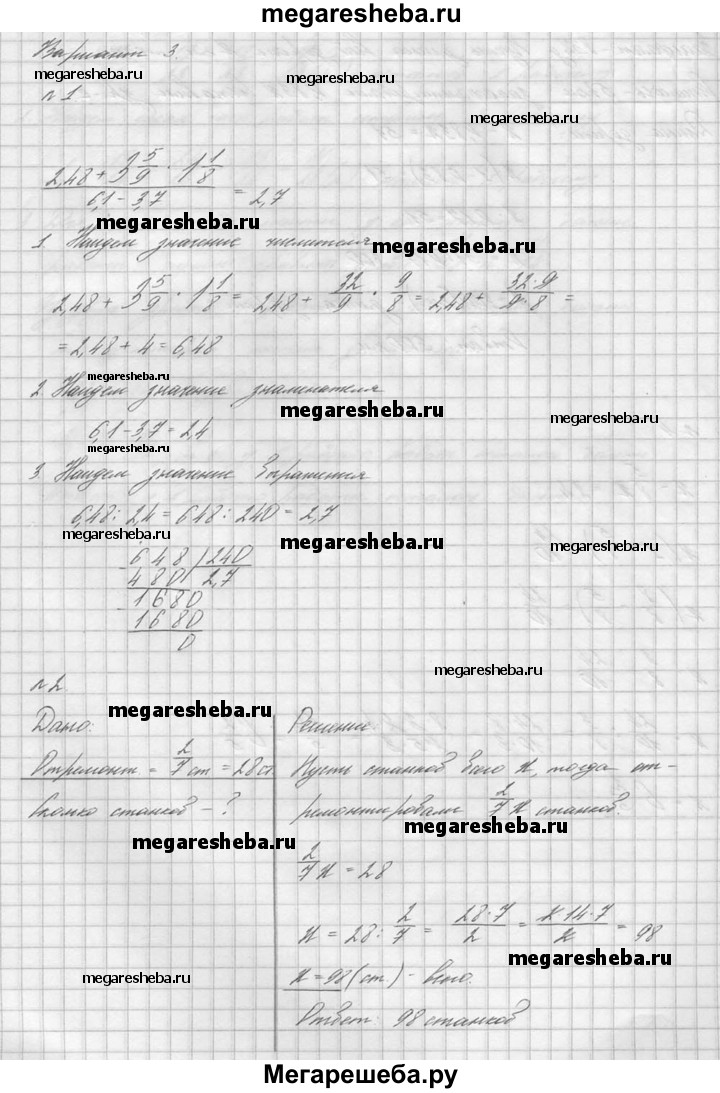 megaresheba.ru
Вариант 3.
megaresheba.ru
megaresheba.ru
№1
megaresheba.ru
(2,48 + 3 5/9 · 1 1/8) / (6,1 − 3,7) = 2,7
megaresheba.ru
1. Найдем значение числителя
megaresheba.ru
2,48 + 3 5/9 · 1 1/8 = 2,48 + 32/9 · 9/8 = 2,48 + (32·9)/(9·8) =
= 2,48 + 4 = 6,48
megaresheba.ru
2. Найдем значение знаменателя
megaresheba.ru
megaresheba.ru
6,1 − 3,7 = 2,4
megaresheba.ru
3. Найдем значение выражения
6,48 : 2,4 = 648 : 240 = 2,7
megaresheba.ru
megaresheba.ru
megaresheba.ru
− 648 | 240
480 | 2,7
− 1680
1680
0
megaresheba.ru
№2
megaresheba.ru
Дано:
Отремонт = 2/7 ст = 28 ст
Сколько станков – ?
megaresheba.ru
Решение:
Пусть станков всего x, тогда от-
ремонтировали 2/7 x станков.
megaresheba.ru
2/7 x = 28
x = 28 : 2/7 = (28·7)/2 = (2·14·7)/2 = 98
megaresheba.ru
megaresheba.ru
x = 98 (ст) – всего.
Ответ: 98 станков
Мегарешеба.ру